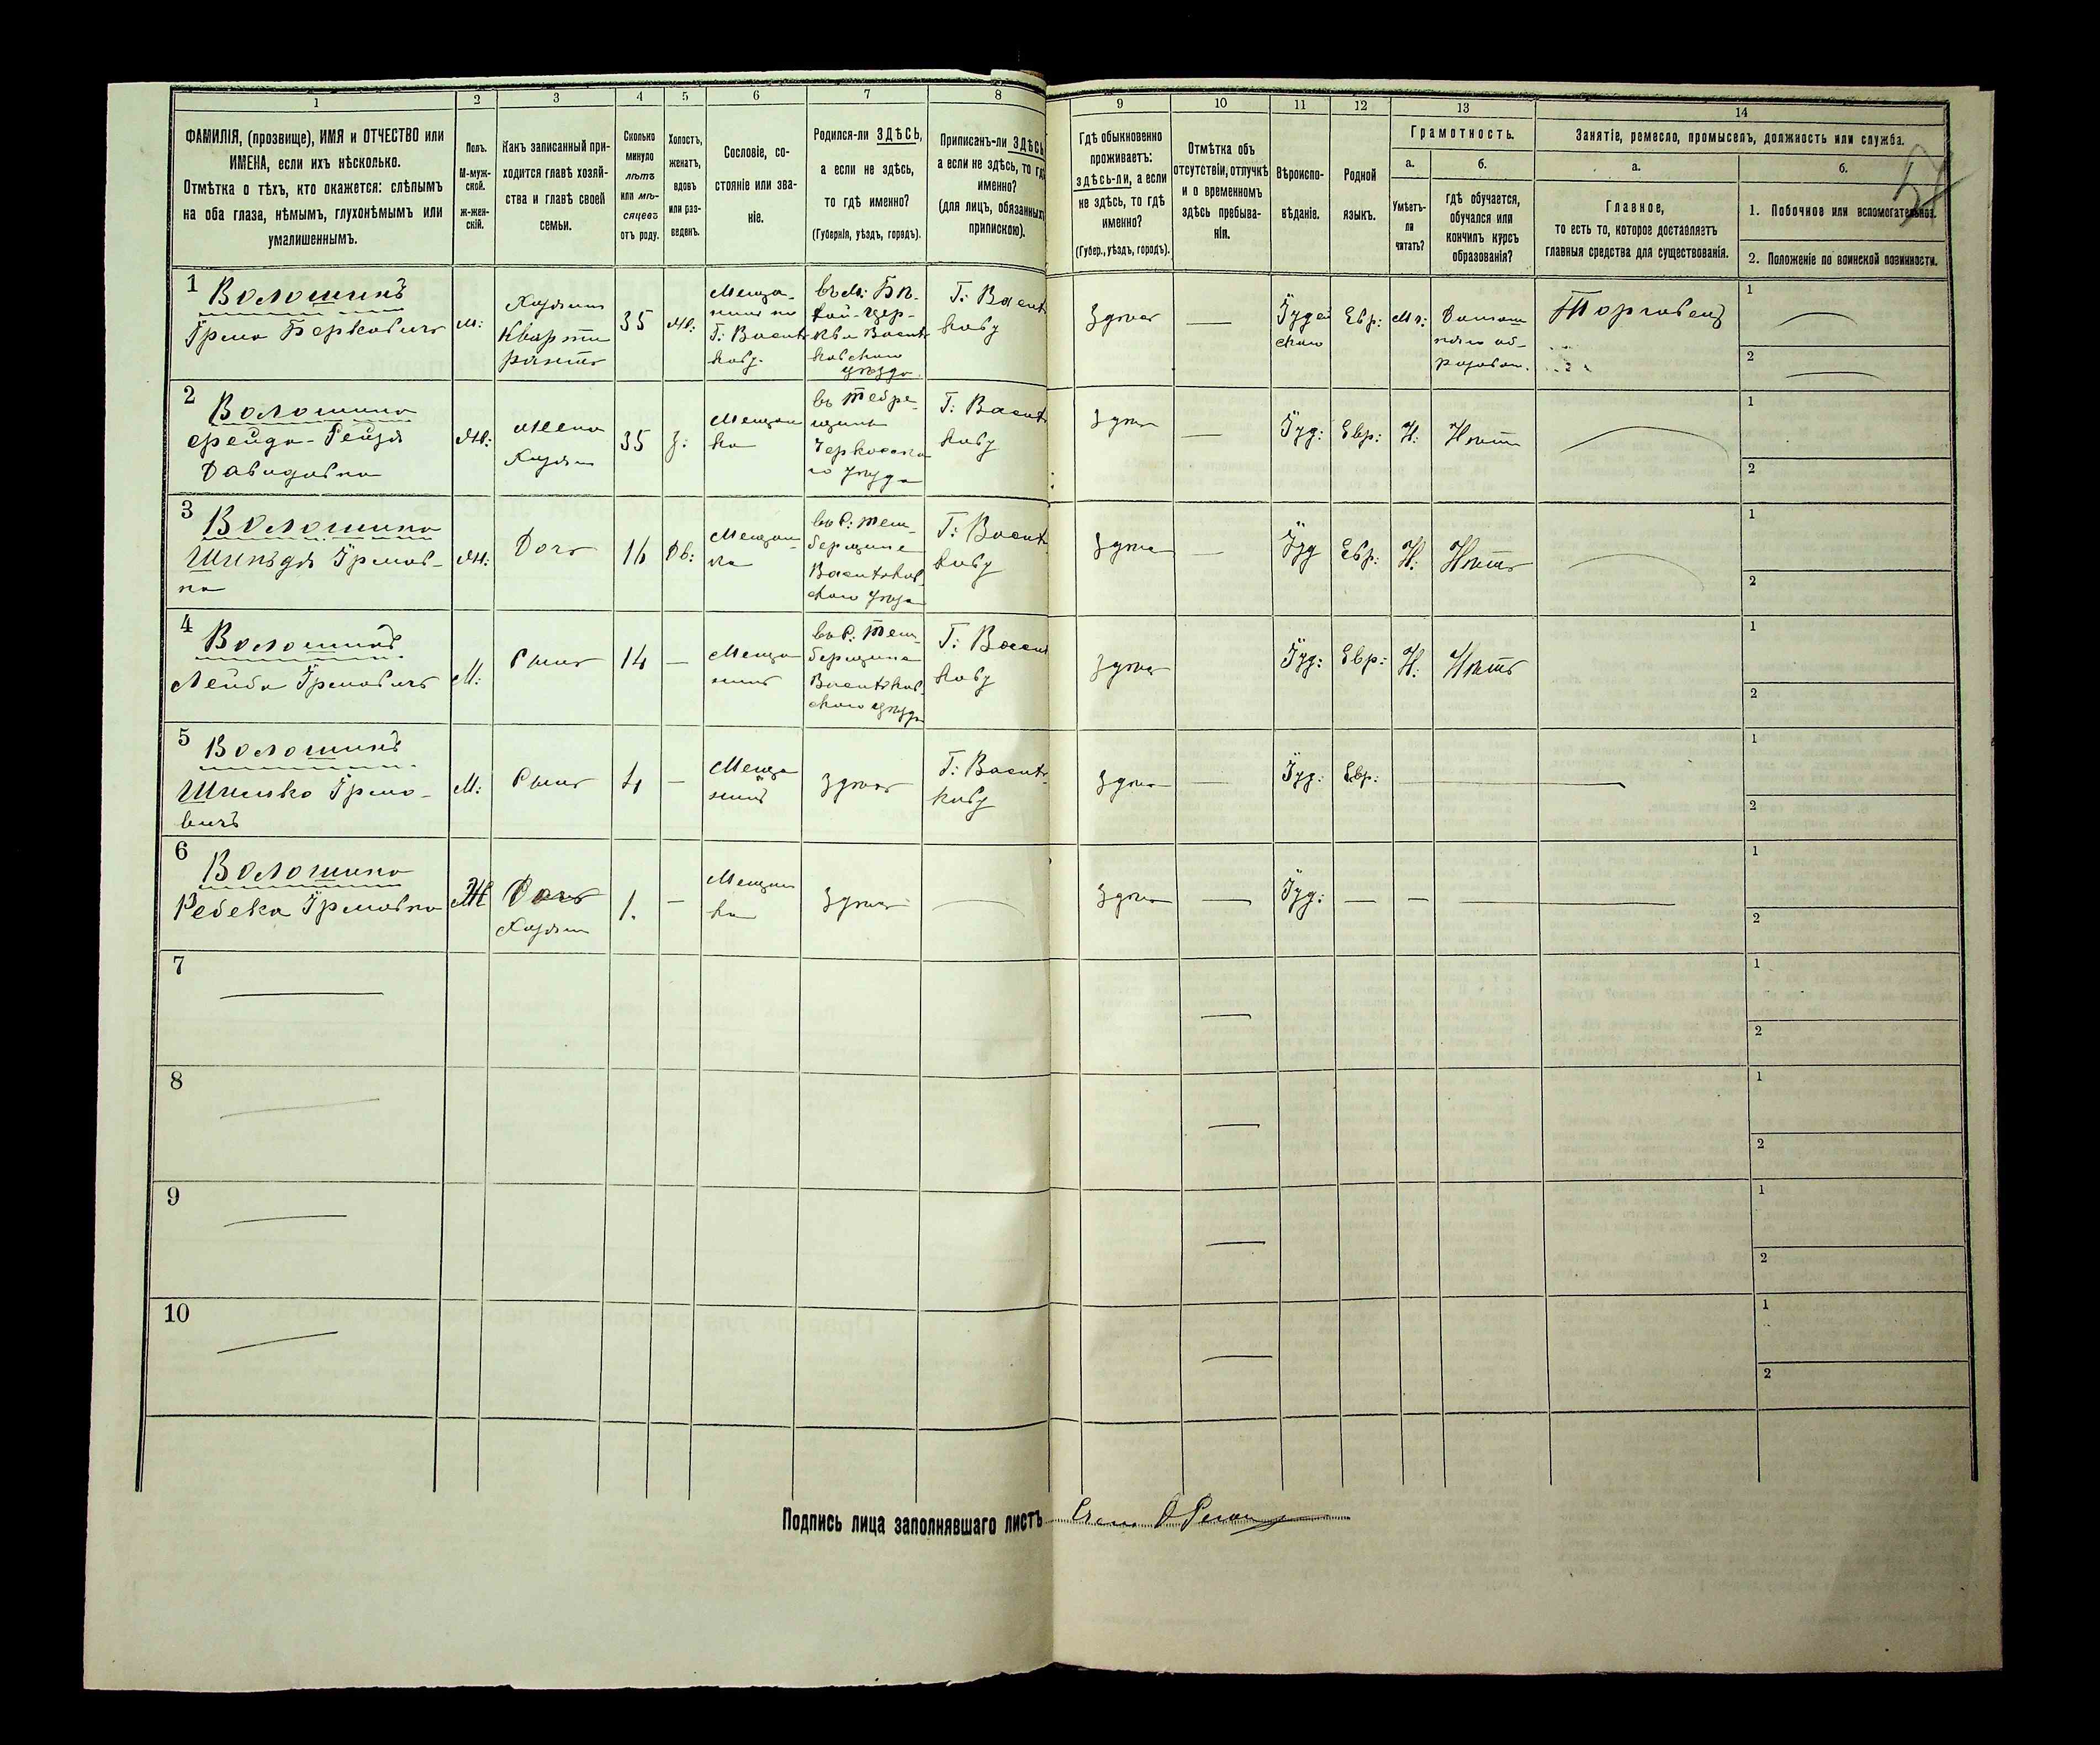 1
2
3
4
5
6
7
8
9
10
11
12
13
14
ФАМИЛІЯ, (прозвище), ИМЯ и ОТЧЕСТВО или
ИМЕНА, если ихъ нѣсколько.
Отмѣтка о тѣхъ, кто окажется: слѣпымъ
на оба глаза, нѣмымъ, глухонѣмымъ или
умалишеннымъ.
Полъ.
М-муж-
ской.
Ж-жен-
скій.
Какъ записанный при-
ходится главѣ хозяй-
ства и главѣ своей
семьи.
Сколько
минуло
лѣтъ
или мѣ-
сяцевъ
отъ роду.
Холостъ,
женатъ,
вдовъ
или раз-
веденъ.
Сословіе, со-
стояніе или зва-
ніе.
Родился-ли ЗДѢСЬ,
а если не здѣсь,
то гдѣ именно?
(Губернія, уѣздъ, городъ).
Приписанъ-ли ЗДѢСЬ
а если не здѣсь, то гдѣ
именно?
(для лицъ, обязанныхъ
припискою).
Гдѣ обыкновенно
проживаетъ:
здѣсь-ли, а если
не здѣсь, то гдѣ
именно?
(Губер., уѣздъ, городъ).
Отмѣтка объ
отсутствіи, отлучкѣ
и о временномъ
здѣсь пребыва-
ніи.
Вѣроиспо-
вѣданіе.
Родной
языкъ.
Грамотность.
а.
Умѣетъ-
ли
читать?
б.
гдѣ обучается,
обучался или
кончилъ курсъ
образованія?
Занятіе, ремесло, промыселъ, должность или служба.
а.
Главное,
то есть то, которое доставляетъ
главныя средства для существованія.
б.
1. Побочное или вспомогательное.
2. Положеніе по воинской повинности.
1
Волошинъ
Ӥрмо Берковичъ
м:
Хозяин
Кварти
рантъ
35
Мѣща-
нинъ по
Г: Василь
кову.
въ м: Бѣ-
лой-Цер-
кви Василь
ковскаго
уѣзда
Г: Василь
кову
Здѣсь
Ӥудей
скаго
Евр:
Домаш
няго об-
разован.
Торговецъ
1
2
2
Волошина
Фрейда-Рейзя
Давидовна
Ж:
Жена
Хозяин
35
З:
Мещан
ка
Черкасска
го уѣзда
Г: Василь
кову
Здѣсь
Ӥуд:
Евр:
Н:
Нѣтъ
1
2
3
Волошина
Ӥрмов-
на
Ж:
Дочь
16
Дѣ:
Мещан-
ка
Васильков-
скаго уѣзда
Г: Василь
кову
Здѣсь
Ӥуд
Евр:
Н:
Нѣтъ
1
2
4
Волошинъ
Лейба Ӥрмовичъ
М:
Сынъ
14
Меща
нинъ
Васильков-
скаго уѣзда
Г: Василь
кову
Здѣсь
Ӥуд:
Евр:
Н:
Нѣтъ
1
2
5
Волошинъ
Шимко Ӥрмо-
вичъ
М:
Сынъ
4
Меща
нинъ
Здѣсь
Г: Василь
кову
Здѣсь
Ӥуд:
Евр:
1
2
6
Волошина
Ребека Ӥрмовна
Ж
Дочь
Хозяин
1.
Мещан
ка
Здѣсь
Здѣсь
Ӥуд:
1
2
7
1
2
8
1
2
9
1
2
10
1
2
Подпись лица заполнявшаго листъ